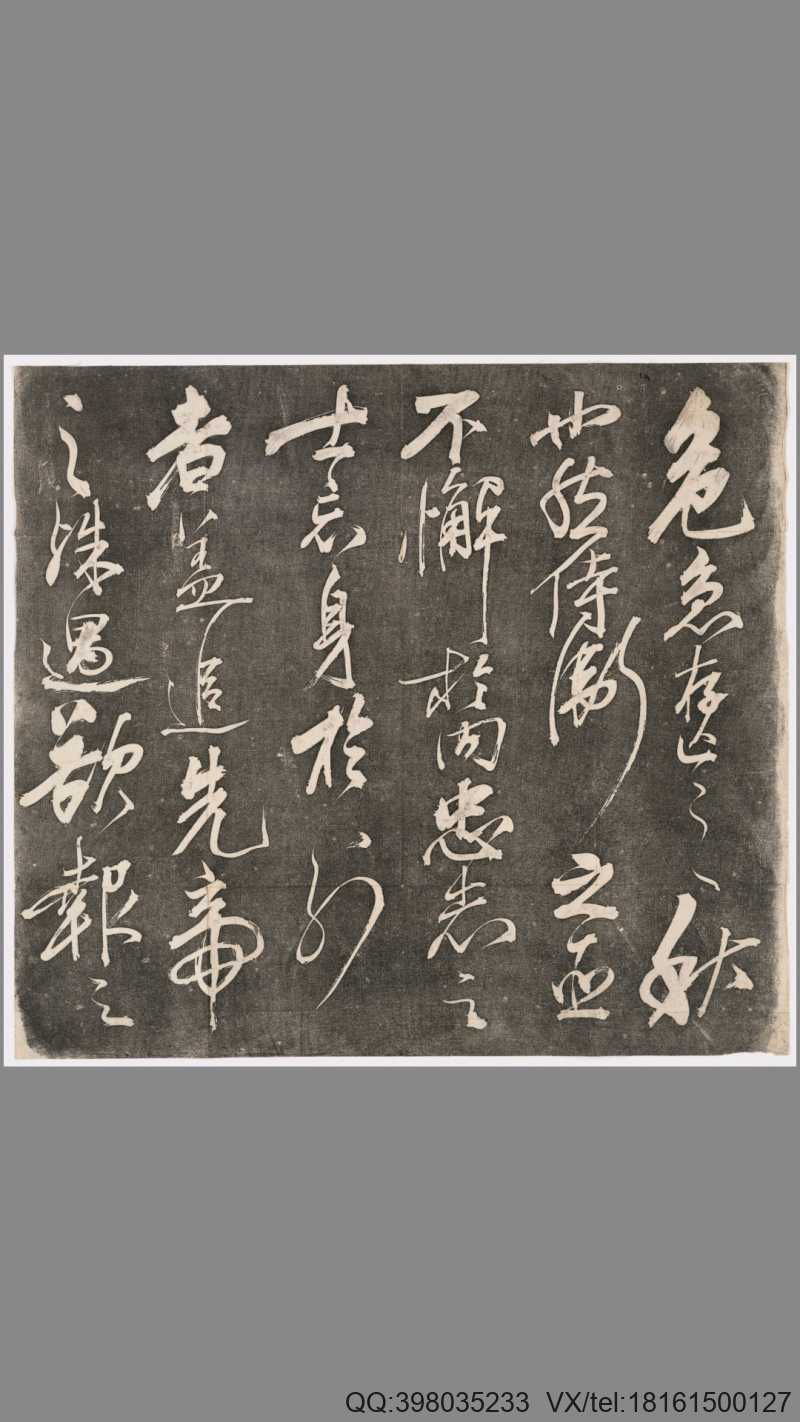 危急存亡之秋
也然侍衛之臣
不懈於内忠志之
士忘身於外
者盖追先帝
之殊遇欲報之
QQ:398035233 VX/tel:18161500127